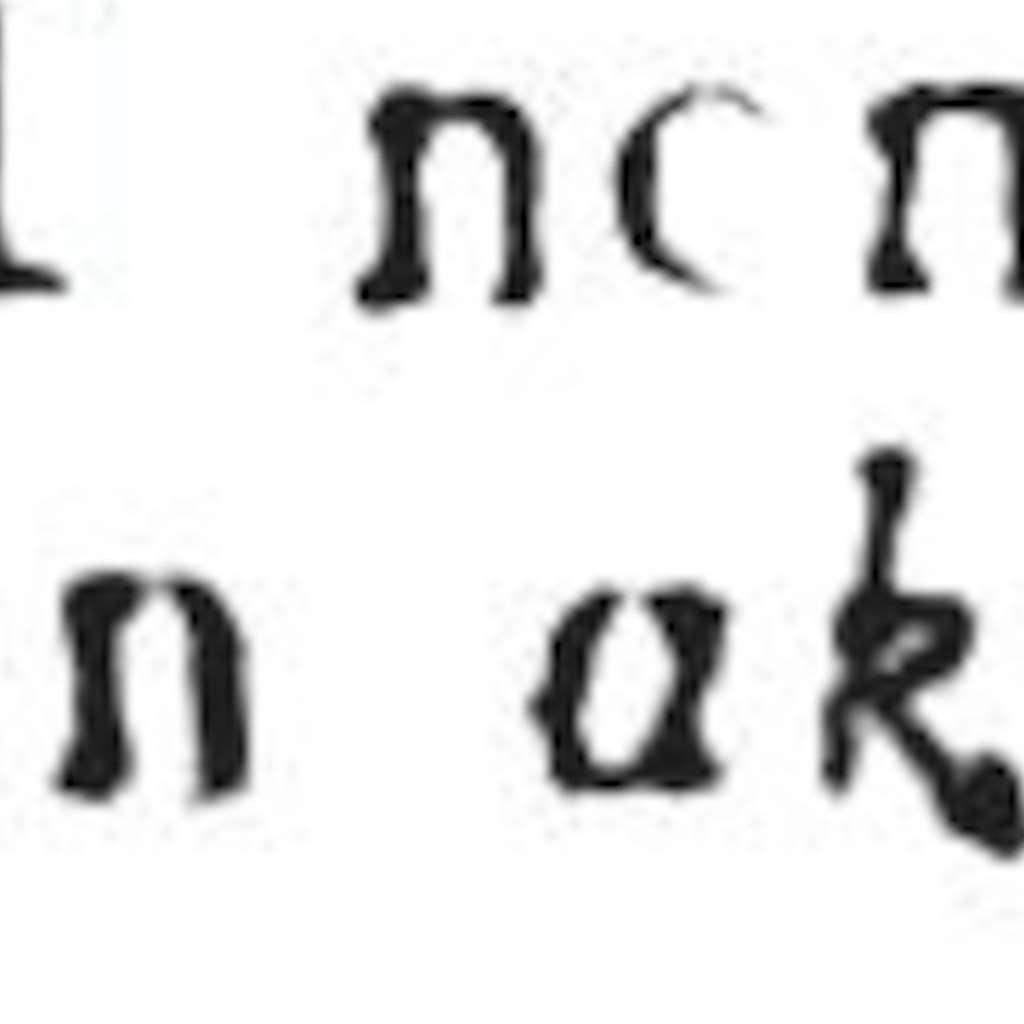 n c n
n ak